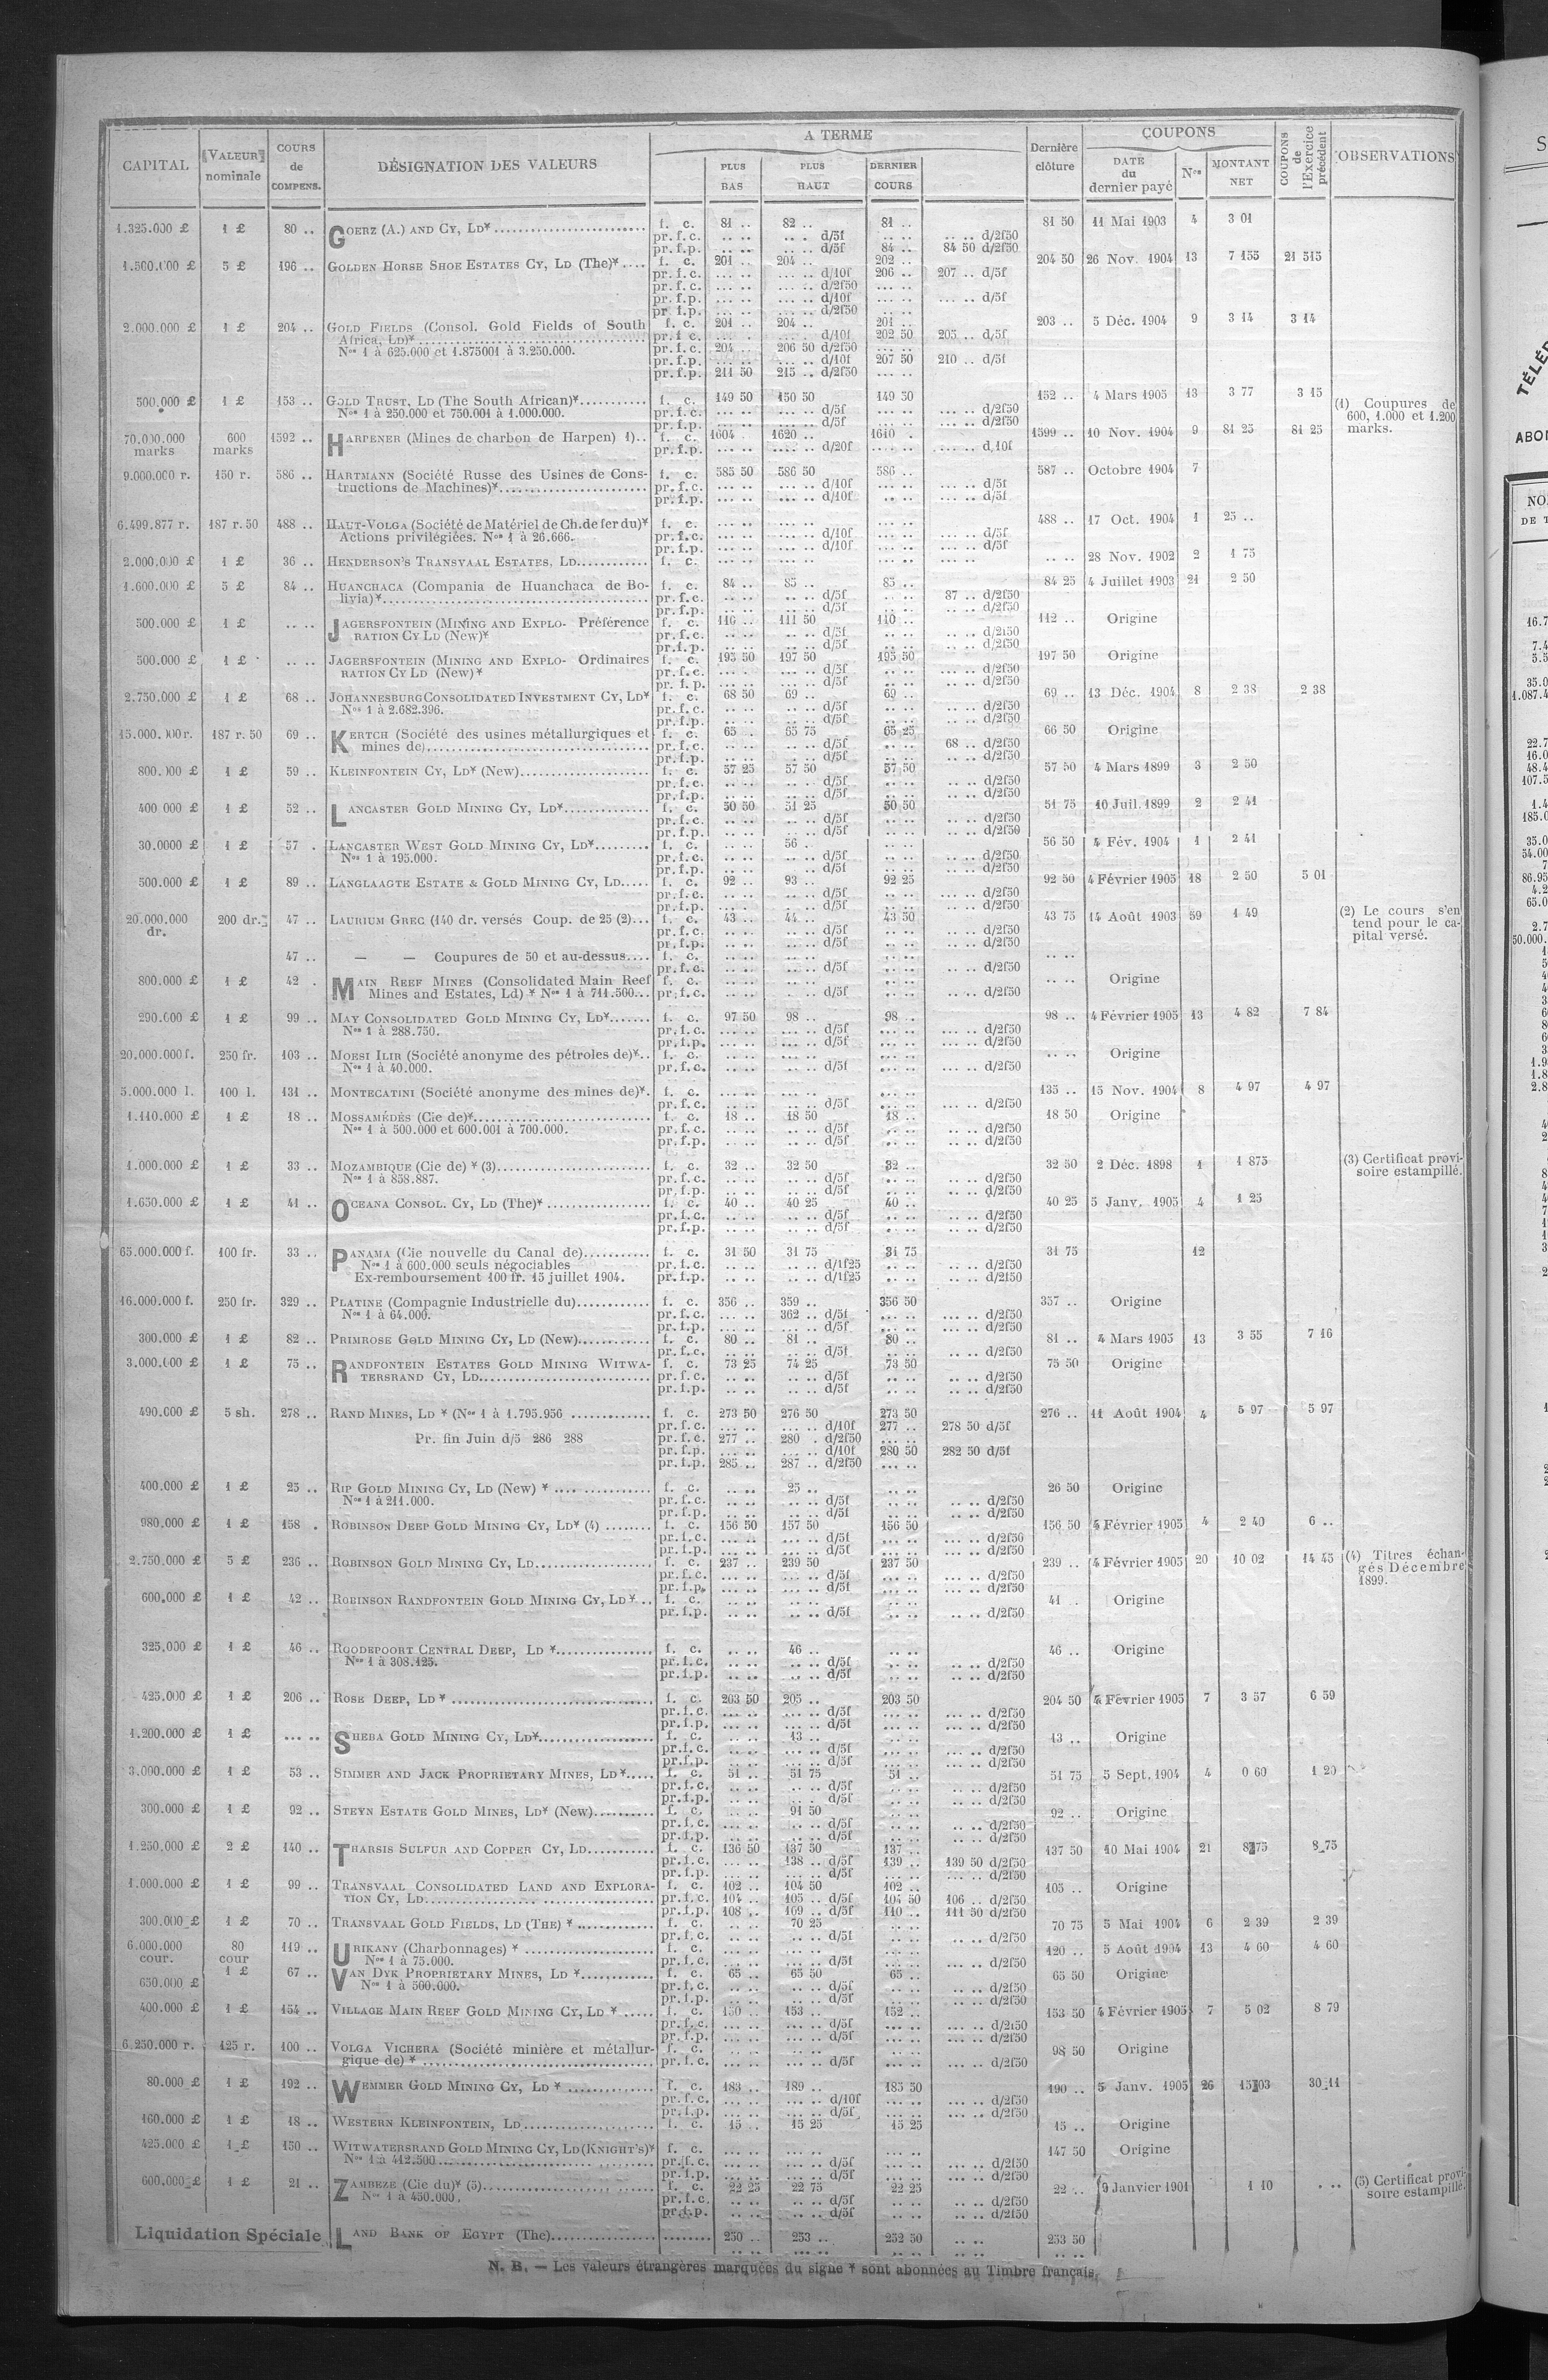 CAPITAL VALEUR nominale COURS de COMPENS. DÉSIGNATION DES VALEURS A TERME PLUS BAS PLUS HAUT DERNIER COURS Dernière clôture COUPONS DATE du dernier payé Nos MONTANT NET COUPONS de l'Exercice précédent OBSERVATIONS
1.325.000 £ 1 £ 80 .. GOERZ (A.) AND CY, LD* f. c. 81 .. 82 .. 81 .. 81 50 11 Mai 1903 4 3 01
pr. f. c. .. .. .. . d/5f .. .. .. .. d/2f50
pr. f. p. .. .. .. .. d/5f 84 .. 84 50 d/2f50
1.500.000 £ 5 £ 196 .. GOLDEN HORSE SHOE ESTATES CY, LD (The)* f. c. 201 .. 204 .. 202 .. 204 50 26 Nov. 1904 13 7 155 21 515
pr. f. c. ... .. ... .. d/10f 206 .. 207 .. d/5f
pr. f. c. ... .. ... .. d/2f50 ... ..
pr. f. p. ... .. ... .. d/10f ... .. ... .. d/5f
pr. f. p. ... .. ... .. d/2f50 ... ..
2.000.000 £ 1 £ 204 .. GOLD FIELDS (Consol. Gold Fields of South f. c. 201 .. 204 .. 201 .. 203 .. 5 Déc. 1904 9 3 14 3 14
Africa, LD)* pr. f. c. ... .. ... .. d/10f 202 50 205 .. d/5f
Nos 1 à 625.000 et 1.875001 à 3.250.000. pr. f. c. 204 .. 206 50 d/2f50 ... ..
pr. f. p. ... .. ... .. d/10f 207 50 210 .. d/5f
pr. f. p. 211 50 215 .. d/2f50 ... ..
500.000 £ 1 £ 153 .. GOLD TRUST, LD (The South African)* f. c. 149 50 150 50 149 50 152 .. 4 Mars 1905 13 3 77 3 15 (1) Coupures de
Nos 1 à 250.000 et 750.001 à 1.000.000. pr. f. c. ... .. ... .. d/5f ... .. ... .. d/2f50 600, 1.000 et 1.200
pr. f. p. ... .. ... .. d/5f ... .. ... .. d/2f50 marks.
70.000.000 600 1592 .. HARPENER (Mines de charbon de Harpen) 1).. f. c. 1604 . 1620 .. 1610 . 1599 .. 10 Nov. 1904 9 81 25 81 25
marks marks pr. f. p. .... .. .... .. d/20f .... .. .... .. d.10f
9.000.000 r. 150 r. 586 .. HARTMANN (Société Russe des Usines de Cons- f. c. 585 50 586 50 586 .. 587 .. Octobre 1904 7
tructions de Machines)* pr. f. c. ... .. ... .. d/10f ... .. ... .. d/5f
pr. f. p. ... .. ... .. d/10f ... .. ... .. d/5f
6.499.877 r. 187 r. 50 488 .. HAUT-VOLGA (Société de Matériel de Ch. de fer du)* f. c. ... .. ... .. ... .. 488 .. 17 Oct. 1904 1 25 ..
Actions privilégiées. Nos 1 à 26.666. pr. f. c. ... .. ... .. d/10f ... .. ... .. d/5f
pr. f. p. ... .. ... .. d/10f ... .. ... .. d/5f
2.000.000 £ 1 £ 36 .. HENDERSON'S TRANSVAAL ESTATES, LD f. c. ... .. ... .. ... .. .. .. 28 Nov. 1902 2 1 75
1.600.000 £ 5 £ 84 .. HUANCHACA (Compania de Huanchaca de Bo- f. c. 84 .. 85 .. 85 .. 84 25 4 Juillet 1903 21 2 50
livia)* pr. f. c. .. .. .. .. d/5f .. .. 87 .. d/2f50
pr. f. p. .. .. .. .. d/5f .. .. .. .. d/2f50
500.000 £ 1 £ .. .. JAGERSFONTEIN (MINING AND EXPLO- Préférence f. c. 110 .. 111 50 110 .. 112 .. Origine
RATION CY LD (New)* pr. f. c. ... .. ... .. d/5f ... .. ... .. d/2f50
pr. f. p. ... .. ... .. d/5f ... .. ... .. d/2f50
500.000 £ 1 £ .. .. JAGERSFONTEIN (MINING AND EXPLO- Ordinaires f. c. 195 50 197 50 195 50 197 50 Origine
RATION CY LD (New)* pr. f. c. ... .. ... .. d/5f ... .. ... .. d/2f50
pr. f. p. ... .. ... .. d/5f ... .. ... .. d/2f50
2.750.000 £ 1 £ 68 .. JOHANNESBURG CONSOLIDATED INVESTMENT CY, LD* f. c. 68 50 69 .. 69 .. 69 .. 13 Déc. 1904 8 2 38 2 38
Nos 1 à 2.682.396. pr. f. c. .. .. .. .. d/5f .. .. .. .. d/2f50
pr. f. p. .. .. .. .. d/5f .. .. .. .. d/2f50
187 r. 50 69 .. KERTCH (Société des usines métallurgiques et f. c. 65 . 65 75 65 25 66 50 Origine
mines de) pr. f. c. .. .. .. .. d/5f .. .. 68 .. d/2f50
pr. f. p. .. .. .. .. d/5f .. .. .. .. d/2f50
1 £ 59 .. KLEINFONTEIN CY, LD* (New) f. c. 57 25 57 50 57 50 57 50 4 Mars 1899 3 2 50
pr. f. c. .. .. .. .. d/5f .. .. .. .. d/2f50
pr. f. p. .. .. .. .. d/5f .. .. .. .. d/2f50
400 000 £ 1 £ 52 .. LANCASTER GOLD MINING CY, LD* f. c. 50 50 51 25 50 50 51 75 10 Juil. 1899 2 2 41
pr. f. c. .. .. .. .. d/5f .. .. .. .. d/2f50
pr. f. p. .. .. .. .. d/5f .. .. .. .. d/2f50
30.0000 £ 1 £ 57 . LANCASTER WEST GOLD MINING CY, LD* f. c. .. .. 56 . .. .. 56 50 4 Fév. 1904 1 2 41
Nos 1 à 195.000. pr. f. c. .. .. .. .. d/5f .. .. .. .. d/2f50
pr. f. p. .. .. .. .. d/5f .. .. .. .. d/2f50
500.000 £ 1 £ 89 .. LANGLAAGTE ESTATE & GOLD MINING CY, LD f. c. 92 .. 93 .. 92 25 92 50 4 Février 1905 18 2 50 5 01
pr. f. c. .. .. .. .. d/5f .. .. .. .. d/2f50
pr. f. p. .. .. .. .. d/5f .. .. .. .. d/2f50
20.000.000 200 dr. 47 .. LAURIUM GREC (140 dr. versés Coup. de 25 (2) f. c. 43 .. 44 .. 43 50 43 75 14 Août 1903 59 1 49 (2) Le cours s'en
dr. pr. f. c. .. .. .. .. d/5f .. .. .. .. d/2f50 tend pour le ca-
pr. f. p. .. .. .. .. d/5f .. .. .. .. d/2f50 pital versé.
47 .. — — Coupures de 50 et au-dessus f. c. .. .. .. .. .. .. .. ..
pr. f. c. .. .. .. .. d/5f .. .. .. .. d/2f50
800.000 £ 1 £ 42 . MAIN REEF MINES (Consolidated Main Reef f. c. .. .. .. .. .. .. .. .. Origine
Mines and Estates, Ld) * Nos 1 à 711.500 pr. f. c. .. .. .. .. d/5f .. .. .. .. d/2f50
290.000 £ 1 £ 99 .. MAY CONSOLIDATED GOLD MINING CY, LD* f. c. 97 50 98 .. 98 .. 98 .. 4 Février 1905 13 4 82 7 84
Nos 1 à 288.750. pr. f. c. ... .. ... .. d/5f ... .. ... .. d/2f50
pr. f. p. ... .. ... .. d/5f ... .. ... .. d/2f50
20.000.000 f. 250 fr. 103 .. MOESI ILIR (Société anonyme des pétroles de)* f. c. ... .. ... .. ... .. .. .. Origine
Nos 1 à 40.000. pr. f. c. ... .. ... .. d/5f ... .. ... .. d/2f50
5.000.000 l. 100 l. 131 .. MONTECATINI (Société anonyme des mines de)* f. c. ... .. ... .. ... .. 135 .. 15 Nov. 1904 8 4 97 4 97
pr. f. c. ... .. ... .. d/5f ... .. ... .. d/2f50
1.110.000 £ 1 £ 18 .. MOSSAMÉDÈS (Cie de)* f. c. 18 .. 18 50 18 .. 18 50 Origine
Nos 1 à 500.000 et 600.001 à 700.000. pr. f. c. .. .. .. .. d/5f .. .. .. .. d/2f50
pr. f. p. .. .. .. .. d/5f .. .. .. .. d/2f50
1.000.000 £ 1 £ 33 .. MOZAMBIQUE (Cie de) * (3) f. c. 32 .. 32 50 32 .. 32 50 2 Déc. 1898 1 1 875 (3) Certificat provi-
Nos 1 à 858.887. pr. f. c. .. .. .. .. d/5f .. .. .. .. d/2f50 soire estampillé.
pr. f. p. .. .. .. .. d/5f .. .. .. .. d/2f50
1.650.000 £ 1 £ 41 .. OCEANA CONSOL. CY, LD (The)* f. c. 40 .. 40 25 40 .. 40 25 5 Janv. 1905 4 1 25
pr. f. c. .. .. .. .. d/5f .. .. .. .. d/2f50
pr. f. p. .. .. .. .. d/5f .. .. .. .. d/2f50
65.000.000 f. 100 fr. 33 .. PANAMA (Cie nouvelle du Canal de) f. c. 31 50 31 75 31 75 31 75 12
Nos 1 à 600.000 seuls négociables pr. f. c. .. .. .. .. d/1f25 .. .. .. .. d/2f50
Ex-remboursement 100 fr. 15 juillet 1904. pr. f. p. .. .. .. .. d/1f25 .. .. .. .. d/2f50
16.000.000 f. 250 fr. 329 .. PLATINE (Compagnie Industrielle du) f. c. 356 .. 359 .. 356 50 357 .. Origine
Nos 1 à 64.000. pr. f. c. ... .. 362 .. d/5f ... .. ... .. d/2f50
pr. f. p. ... .. ... .. d/5f ... .. ... .. d/2f50
300.000 £ 1 £ 82 .. PRIMROSE GOLD MINING CY, LD (New) f. c. 80 .. 81 .. 80 .. 81 .. 4 Mars 1905 13 3 55 7 16
pr. f. c. .. .. .. .. d/5f .. .. .. .. d/2f50
3.000.000 £ 1 £ 75 .. RANDFONTEIN ESTATES GOLD MINING WITWA- f. c. 73 25 74 25 73 50 75 50 Origine
TERSRAND CY, LD pr. f. c. .. .. .. .. d/5f .. .. .. .. d/2f50
pr. f. p. .. .. .. .. d/5f .. .. .. .. d/2f50
490.000 £ 5 sh. 278 .. RAND MINES, LD * (Nos 1 à 1.795.956 f. c. 273 50 276 50 273 50 276 .. 11 Août 1904 4 5 97 5 97
pr. f. c. ... .. ... .. d/10f 277 .. 278 50 d/5f
Pr. fin Juin d/5 286 288 pr. f. c. 277 .. 280 . d/2f50 ... ..
pr. f. p. ... .. ... .. d/10f 280 50 282 50 d/5f
pr. f. p. 285 .. 287 .. d/2f50 ... ..
400.000 £ 1 £ 25 .. RIP GOLD MINING CY, LD (New) * f. c. .. .. 25 .. .. .. 26 50 Origine
Nos 1 à 211.000. pr. f. c. .. .. .. .. d/5f .. .. .. .. d/2f50
pr. f. p. .. .. .. .. d/5f .. .. .. .. d/2f50
980.000 £ 1 £ 158 . ROBINSON DEEP GOLD MINING CY, LD* (4) f. c. 156 50 157 50 156 50 156 50 4 Février 1905 4 2 40 6 ..
pr. f. c. ... .. ... .. d/5f ... .. ... .. d/2f50
pr. f. p. ... .. ... .. d/5f ... .. ... .. d/2f50
2.750.000 £ 5 £ 236 .. ROBINSON GOLD MINING CY, LD f. c. 237 .. 239 50 237 50 239 .. 4 Février 1905 20 10 02 14 45 (4) Titres échan-
pr. f. c. ... .. ... .. d/5f ... .. ... .. d/2f50 gés Décembre
pr. f. p. ... .. ... .. d/5f ... .. ... .. d/2f50 1899.
600.000 £ 1 £ 42 .. ROBINSON RANDFONTEIN GOLD MINING CY, LD* f. c. .. .. .. .. .. .. 41 .. Origine
pr. f. p. .. .. .. .. d/5f .. .. .. .. d/2f50
325.000 £ 1 £ 46 .. ROODEPOORT CENTRAL DEEP, LD * f. c. .. .. 46 .. .. .. 46 .. Origine
Nos 1 à 308.125. pr. f. c. .. .. .. .. d/5f .. .. .. .. d/2f50
pr. f. p. .. .. .. .. d/5f .. .. .. .. d/2f50
425.000 £ 1 £ 206 .. ROSE DEEP, LD * f. c. 203 50 205 .. 203 50 204 50 4 Février 1905 7 3 57 6 59
pr. f. c. ... .. ... .. d/5f ... .. ... .. d/2f50
pr. f. p. ... .. ... .. d/5f ... .. ... .. d/2f50
1.200.000 £ 1 £ ... .. SHEBA GOLD MINING CY, LD* f. c. .. .. 13 .. .. .. 13 .. Origine
pr. f. c. .. .. .. .. d/5f .. .. .. .. d/2f50
pr. f. p. .. .. .. .. d/5f .. .. .. .. d/2f50
3.000.000 £ 1 £ 53 .. SIMMER AND JACK PROPRIETARY MINES, LD* f. c. 51 .. 51 75 51 .. 51 75 5 Sept. 1904 4 0 60 1 20
pr. f. c. .. .. .. .. d/5f .. .. .. .. d/2f50
pr. f. p. .. .. .. .. d/5f .. .. .. .. d/2f50
300.000 £ 1 £ 92 .. STEYN ESTATE GOLD MINES, LD* (New) f. c. .. .. 91 50 .. .. 92 .. Origine
pr. f. c. ... .. ... .. d/5f ... .. ... .. d/2f50
pr. f. p. ... .. ... .. d/5f ... .. ... .. d/2f50
1.250.000 £ 2 £ 140 .. THARSIS SULFUR AND COPPER CY, LD f. c. 136 50 137 50 137 .. 137 50 10 Mai 1904 21 8 75 8 75
pr. f. c. ... .. 138 .. d/5f 139 .. 139 50 d/2f50
pr. f. p. ... .. ... .. d/5f ... .. ... .. d/2f50
1.000.000 £ 1 £ 99 .. TRANSVAAL CONSOLIDATED LAND AND EXPLORA- f. c. 102 .. 104 50 102 .. 105 .. Origine
TION CY, LD pr. f. c. 104 .. 105 .. d/5f 104 50 106 .. d/2f50
pr. f. p. 108 .. 109 .. d/5f 110 .. 111 50 d/2f50
300.000 £ 1 £ 70 .. TRANSVAAL GOLD FIELDS, LD (THE) * f. c. .. .. 70 25 .. .. 70 75 5 Mai 1904 6 2 39 2 39
pr. f. c. .. .. .. .. d/5f .. .. .. .. d/2f50
6.000.000 80 119 .. URIKANY (Charbonnages) * f. c. ... .. ... .. ... .. 120 .. 5 Août 1904 13 4 60 4 60
cour. cour Nos 1 à 75.000. pr. f. c. ... .. ... .. d/5f ... .. ... .. d/2f50
650.000 £ 1 £ 67 .. VAN DYK PROPRIETARY MINES, LD * f. c. 65 .. 65 50 65 .. 65 50 Origine
Nos 1 à 500.000. pr. f. c. .. .. .. .. d/5f .. .. .. .. d/2f50
pr. f. p. .. .. .. .. d/5f .. .. .. .. d/2f50
400.000 £ 1 £ 154 .. VILLAGE MAIN REEF GOLD MINING CY, LD * f. c. 150 .. 153 .. 152 .. 153 50 4 Février 1905 7 5 02 8 79
pr. f. c. ... .. ... .. d/5f ... .. ... .. d/2f50
pr. f. p. ... .. ... .. d/5f ... .. ... .. d/2f50
6.250.000 r. 125 r. 100 .. VOLGA VICHERA (Société minière et métallur- f. c. ... .. ... .. ... .. 98 50 Origine
gique de) * pr. f. c. ... .. ... .. d/5f ... .. ... .. d/2f50
80.000 £ 1 £ 192 .. WEMMER GOLD MINING CY, LD * f. c. 183 .. 189 .. 185 50 190 .. 5 Janv. 1905 26 15 03 30 11
pr. f. c. ... .. ... .. d/10f ... .. ... .. d/2f50
pr. f. p. ... .. ... .. d/5f ... .. ... .. d/2f50
160.000 £ 1 £ 18 .. WESTERN KLEINFONTEIN, LD f. c. 15 .. 15 25 15 25 15 .. Origine
425.000 £ 1 £ 150 .. WITWATERSRAND GOLD MINING CY, LD (KNIGHT'S)* f. c. ... .. ... .. ... .. 147 50 Origine
Nos 1 à 412.500 pr. f. c. ... .. ... .. d/5f ... .. ... .. d/2f50
pr. f. p. ... .. ... .. d/5f ... .. ... .. d/2f50
600.000 £ 1 £ 21 .. ZAMBEZE (Cie du)* (5) f. c. 22 25 22 75 22 25 22 .. 9 Janvier 1901 1 10 . .. (5) Certificat provi-
Nos 1 à 450.000. pr. f. c. .. .. .. .. d/5f .. .. .. .. d/2f50 soire estampillé.
pr. f. p. .. .. .. .. d/5f .. .. .. .. d/2f50
Liquidation Spéciale LAND BANK OF EGYPT (The) 250 .. 253 .. 252 50 .. .. 253 50
N. B. — Les valeurs étrangères marquées du signe * sont abonnées au Timbre français.
TÉLÉ
ABO
NO
DE T